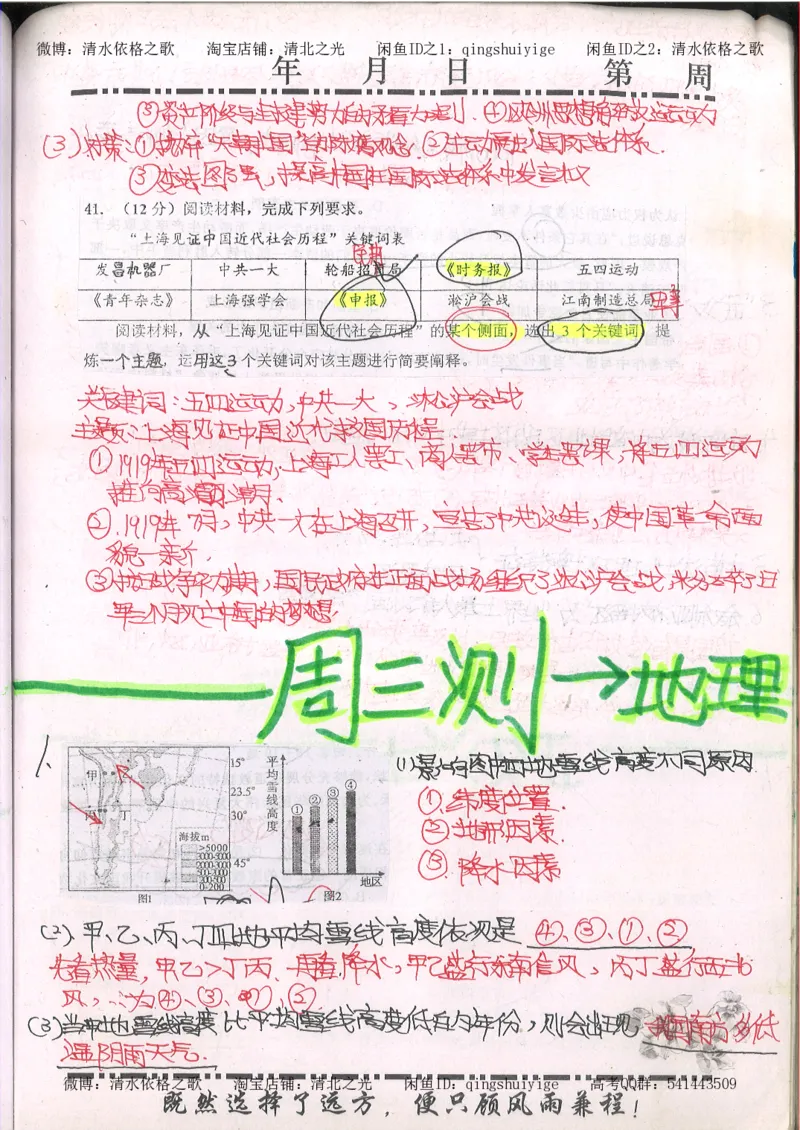 微博：清水依格之歌 淘宝店铺：清北之光 闲鱼ID之1：qingshuiyige 闲鱼ID之2：清水依格之歌
年 月 日 第 周
③资产阶级与封建势力的矛盾力 ④欧洲思想解放运动
(3)对策：①抛弃“天朝上国”的陈腐观念.②主动融入国际法体系.
③变法图强，提高中国在国际法体系中发言权
41. （12分）阅读材料，完成下列要求。
“上海见证中国近代社会历程”关键词表
发昌机器厂 中共一大 轮船招商局 《时务报》 五四运动
《青年杂志》 上海强学会 《申报》 淞沪会战 江南制造总局
阅读材料，从“上海见证中国近代社会历程”的某个侧面，选出3个关键词，提
炼一个主题，运用这3个关键词对该主题进行简要阐释。
关键词：五四运动，中共一大，淞沪会战
主题：上海见证中国近代救国历程
①1919年五四运动，上海工人罢工、商人罢市、学生罢课，将五四运动
推向高潮.
②.1919年7月，中共一大在上海召开，宣告了中共诞生，使中国革命面
貌一新.
③抗日战争初期，国民政府在正面战场组织了淞沪会战，粉碎了日
军三个月灭亡中国的梦想.
周三测→地理
1.
甲 乙
丙 丁
15°
23.5°
30°
45°
海拔m
>5000
3000-5000
2000-3000
500-2000
200-500
0-200
图1
平均雪线高度
① ② ③ ④
地区
图2
(1)影响图中四地雪线高度不同原因
①.纬度位置.
②.地形因素.
③.降水因素
(2).甲、乙、丙、丁四地平均雪线高度依次是 ④、③、①、②
先看热量，甲乙>丁丙.再看降水，甲乙盛行东南信风，丙丁盛行西北
风，∴为④、③、①、②
(3)当丙地雪线高度比平均雪线高度低的年份，则会出现
温阴雨天气.
微博：清水依格之歌 淘宝店铺：清北之光 闲鱼ID：qingshuiyige 高考QQ群：541443509
既然选择了远方，便只顾风雨兼程！